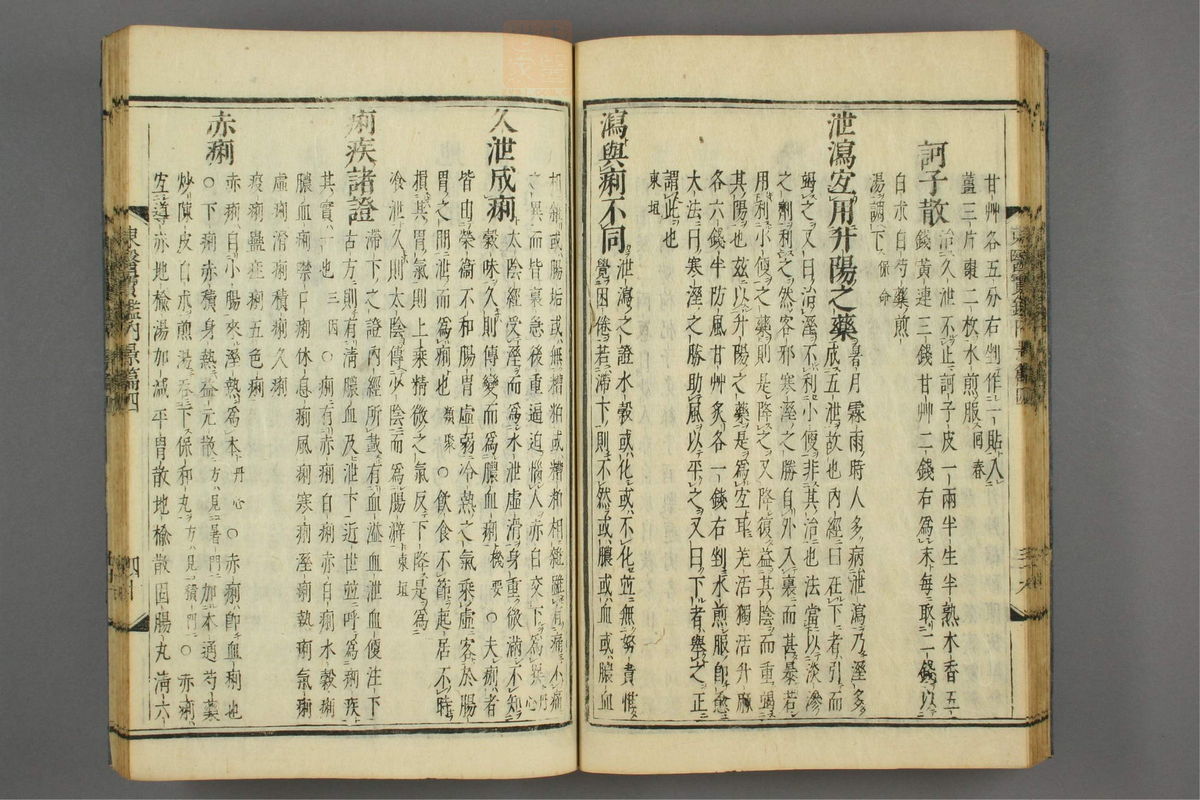 甘艸各五分右剉作一貼入
薑三片棗二枚水煎服回春
訶子散治久泄不止訶子皮一兩半生半熟木香五
錢黃連三錢甘艸二錢右爲末每取二錢以
白朮白芍藥煎
湯調下保命
泄瀉宜用升陽之藥暑月霖雨時人多病泄瀉乃溼多
成五泄故也內經曰在下者引而
竭之又曰治溼不利小便非其治也法當以淡滲
之劑利之然客邪寒溼之勝自外入裏而甚暴若
用利小便之藥則是降之又降復益其陰而重竭
其陽也玆以升陽之藥是爲宜耳羌活獨活升麻
各六錢半防風甘艸炙各一錢右剉水煎服卽愈
大法曰寒溼之勝助風以平之又曰下者擧之正
謂此也
東垣
瀉與痢不同泄瀉之證水穀或化或不化並無努責惟
覺困倦若滯下則不然或膿或血或膿血
相雜或腸垢或無糟粕或糟粕相雜雖有痛不痛
之異而皆裏急後重逼迫惱人赤白交下爲異丹心
久泄成痢太陰經受溼而爲水泄虛滑身重微滿不知
穀味久則傳變而爲膿血痢機要○夫痢者
皆由榮衛不和腸胃虛弱冷熱之氣乘虛客於腸
胃之間泄而爲痢也類聚○飮食不節起居不時
損其胃氣則上乘精微之氣反下降是爲
飱泄久則太陰傳少陰而爲腸澼東垣
痢疾諸證古方則有淸膿血及泄下近世並呼爲痢疾
滯下之證內經所載有血溢血泄血便注下
其實一也三因○痢有赤痢白痢赤白痢水穀痢
膿血痢噤口痢休息痢風痢寒痢溼痢熱痢氣痢
虛痢滑痢積痢久痢
疫痢蠱疰痢五色痢
赤痢赤痢自小腸來溼熱爲本丹心○赤痢卽血痢也
○下痢赤積身熱益元散方見暑門加木通芍藥
炒陳皮白朮煎湯呑下保和丸方見積門○赤痢
宜導赤地楡湯加減平胃散地楡散固腸丸淸六
東醫寶鑑內景篇四
四